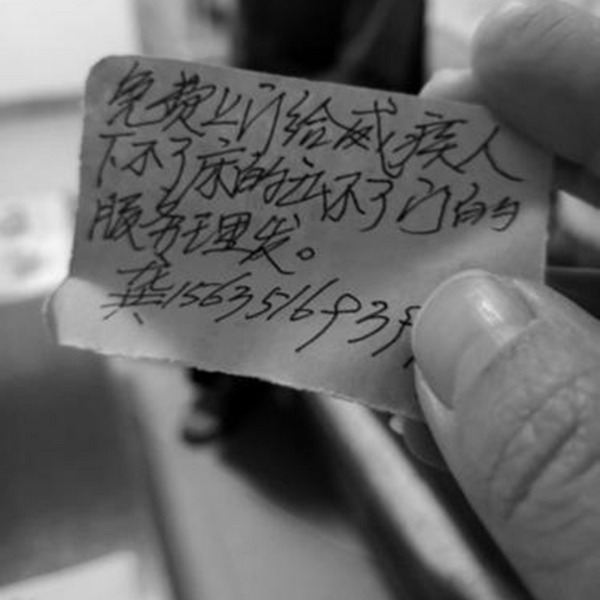 免费上门给威疾人
下不了床的出不了门的
服务理发。
龚1563516939